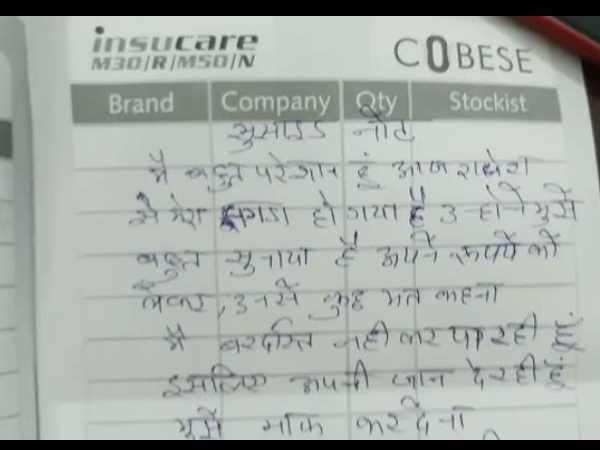 insucare
M30/R/M50/N
COBESE
Brand Company Qty Stockist
सुसाइड नोट
मै बहुत परेशान हूं आज राधेश
से मेरा झगडा हो गया है उन्होंने मुझे
बहुत सुनाया है अपने रूपये को
लेकर, उनसे कुछ मत कहना
मै बरदास्त नही कर पा रही हूं
इसलिए अपनी जान दे रही हूं
मुझे माफ कर देना